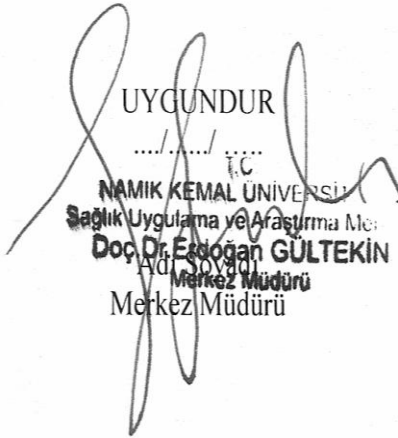 UYGUNDUR
..../...../ .....
T.C
NAMIK KEMAL ÜNİVERSİ
Sağlık Uygulama ve Araştırma Me
Doç Dr. Erdoğan GÜLTEKİN
Adı Soyadı
Merkez Müdürü
Merkez Müdürü